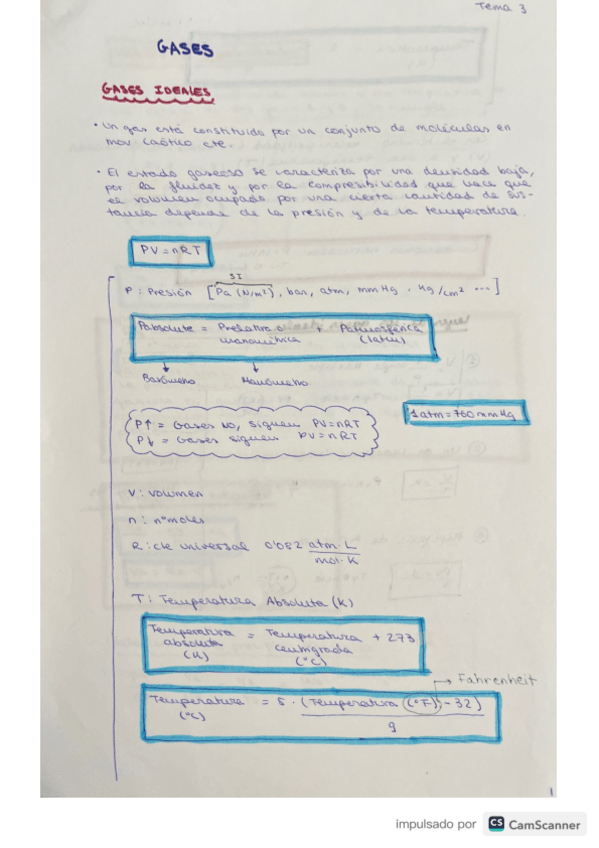 Tema 3
GASES
GASES IDEALES
• Un gas está constituido por un conjunto de moléculas en
mov caótico cte.
• El estado gaseoso se caracteriza por una densidad baja,
por la fluidez y por la compresibilidad que hace que
el volumen ocupado por una cierta cantidad de sus-
tancia dependa de la presión y de la temperatura.
PV = nRT
SI
P: Presión [Pa (N/m²), bar, atm, mmHg, Kg/cm² ...]
Pabsoluta = Prelativa o + Patmosférica
manométrica (1atm)
Barómetro Manómetro
1 atm = 760 mmHg
P↑ = Gases NO, siguen PV=nRT
P↓ = Gases siguen PV=nRT
V: volumen
n: nº moles
R: cte universal 0'082 atm·L
mol·K
T: Temperatura Absoluta (K)
Temperatura = Temperatura + 273
absoluta centigrada
(K) (°C)
Fahrenheit
Temperatura = 5 · (Temperatura (°F) - 32)
(°C) 9
1
impulsado por CS CamScanner